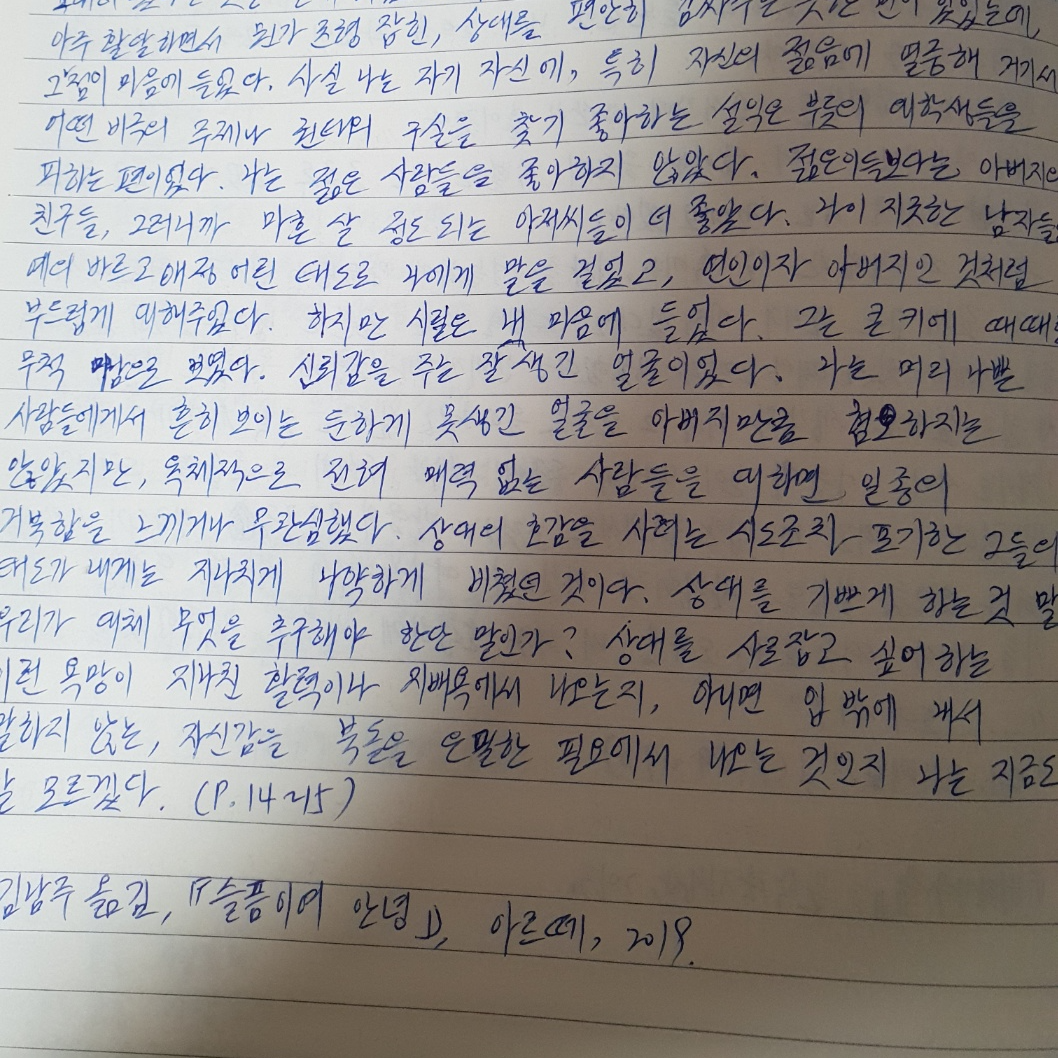 아주 활달하면서 뭔가 균형 잡힌, 상대를 편안히 감싸주는 듯한 면이 있었는데,
그 점이 마음에 들었다. 사실 나는 자기 자신에, 특히 자신의 젊음에 열중해 거기서
어떤 비극의 주제나 권태의 구실을 찾기 좋아하는 설익은 부릇의 대학생들을
피하는 편이었다. 나는 젊은 사람들을 좋아하지 않았다. 젊은이들보다는 아버지의
친구들, 그러니까 마흔 살 정도 되는 아저씨들이 더 좋았다. 나이 지긋한 남자들
예의 바르고 애정 어린 태도로 나에게 말을 걸었고, 연인이자 아버지인 것처럼
부드럽게 대해주었다. 하지만 시릴은 내 마음에 들었다. 그는 큰 키에 때때
무척 보였다. 신뢰감을 주는 잘생긴 얼굴이었다. 나는 머리 나쁜
사람들에게서 흔히 보이는 둔하게 못생긴 얼굴을 아버지만큼 혐오하지는
않았지만, 육체적으로 전혀 매력 없는 사람들을 대하면 일종의
거북함을 느끼거나 무관심했다. 상대의 호감을 사려는 시도조차 포기한 그들의
태도가 내게는 지나치게 나약하게 비쳤던 것이다. 상대를 기쁘게 하는 것 말
우리가 대체 무엇을 추구해야 한단 말인가? 상대를 사로잡고 싶어 하는
이런 욕망이 지나친 활력이나 지배욕에서 나오는지, 아니면 입 밖에 내서
말하지 않는, 자신감을 북돋을 은밀한 필요에서 나오는 것인지 나는 지금도
잘 모르겠다. (P.14-15)
김남주 옮김, 『슬픔이여 안녕』, 아르떼, 2019.